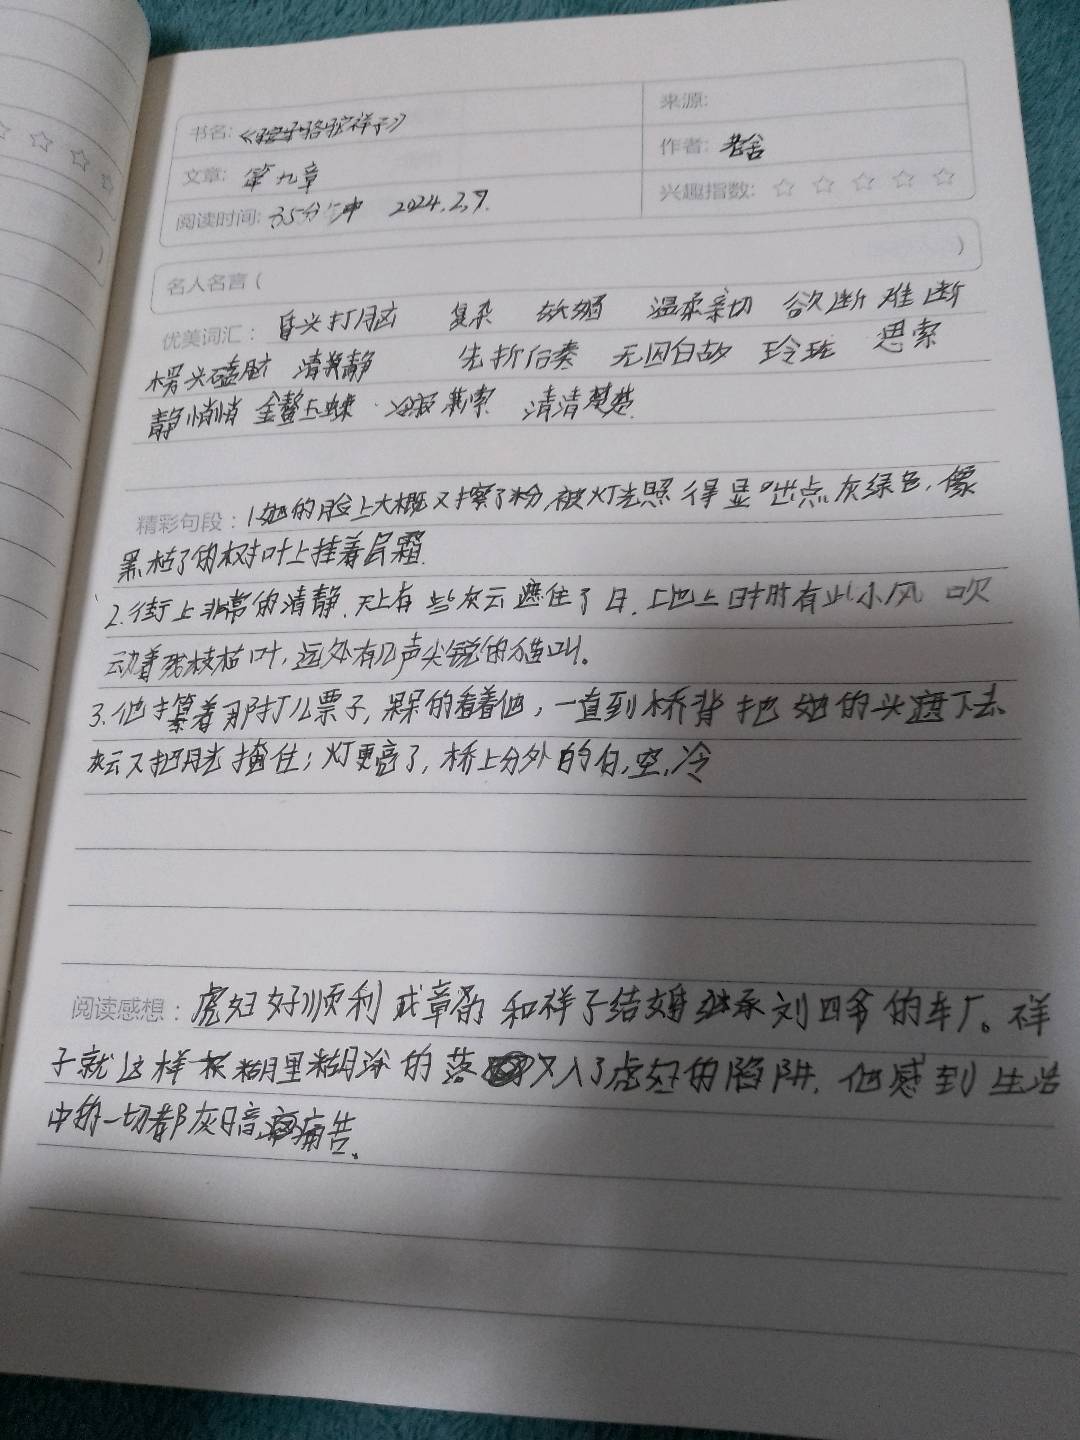 书名: 《骆驼祥子》
来源:
文章: 第九章
作者: 老舍
阅读时间: 35分钟 2024.2.7.
兴趣指数: ☆ ☆ ☆ ☆ ☆
名人名言 ( )
优美词汇: 昏头打脑 复杂 妩媚 温柔亲切 欲断难断
楞头磕脑 清静 先折后奏 无因白故 玲珑 思索
静悄悄 金鳌玉蝀 冷寂萧索 清清楚楚
精彩句段: 1.她的脸上大概又擦了粉,被灯光照得显出点灰绿色,像
黑枯了的树叶上挂着层霜.
2.街上非常的清静.天上有些灰云遮住了月.地上时时有些小风 吹
动着残枝枯叶,远处有几声尖锐的猫叫。
3.他攥着那打儿票子,呆呆的看着他,一直到桥背把她的头遮下去.
灰云又把月光掩住;灯更亮了,桥上分外的白,空,冷
阅读感想: 虎妞好顺利成章的和祥子结婚继承刘四爷的车厂。祥
子就这样糊里糊涂的落入了虎妞的陷阱.他感到生活
中的一切都灰暗痛苦.